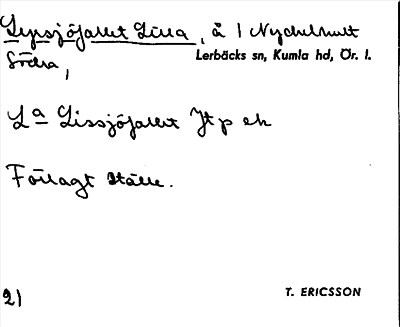 Lepsjöfallet Lilla, å 1 Nyckelhult
Södra,
Lerbäcks sn, Kumla hd, Ör. l.
La Lissjöfallet Jtp ek
Förlagt ställe.
21 T. ERICSSON